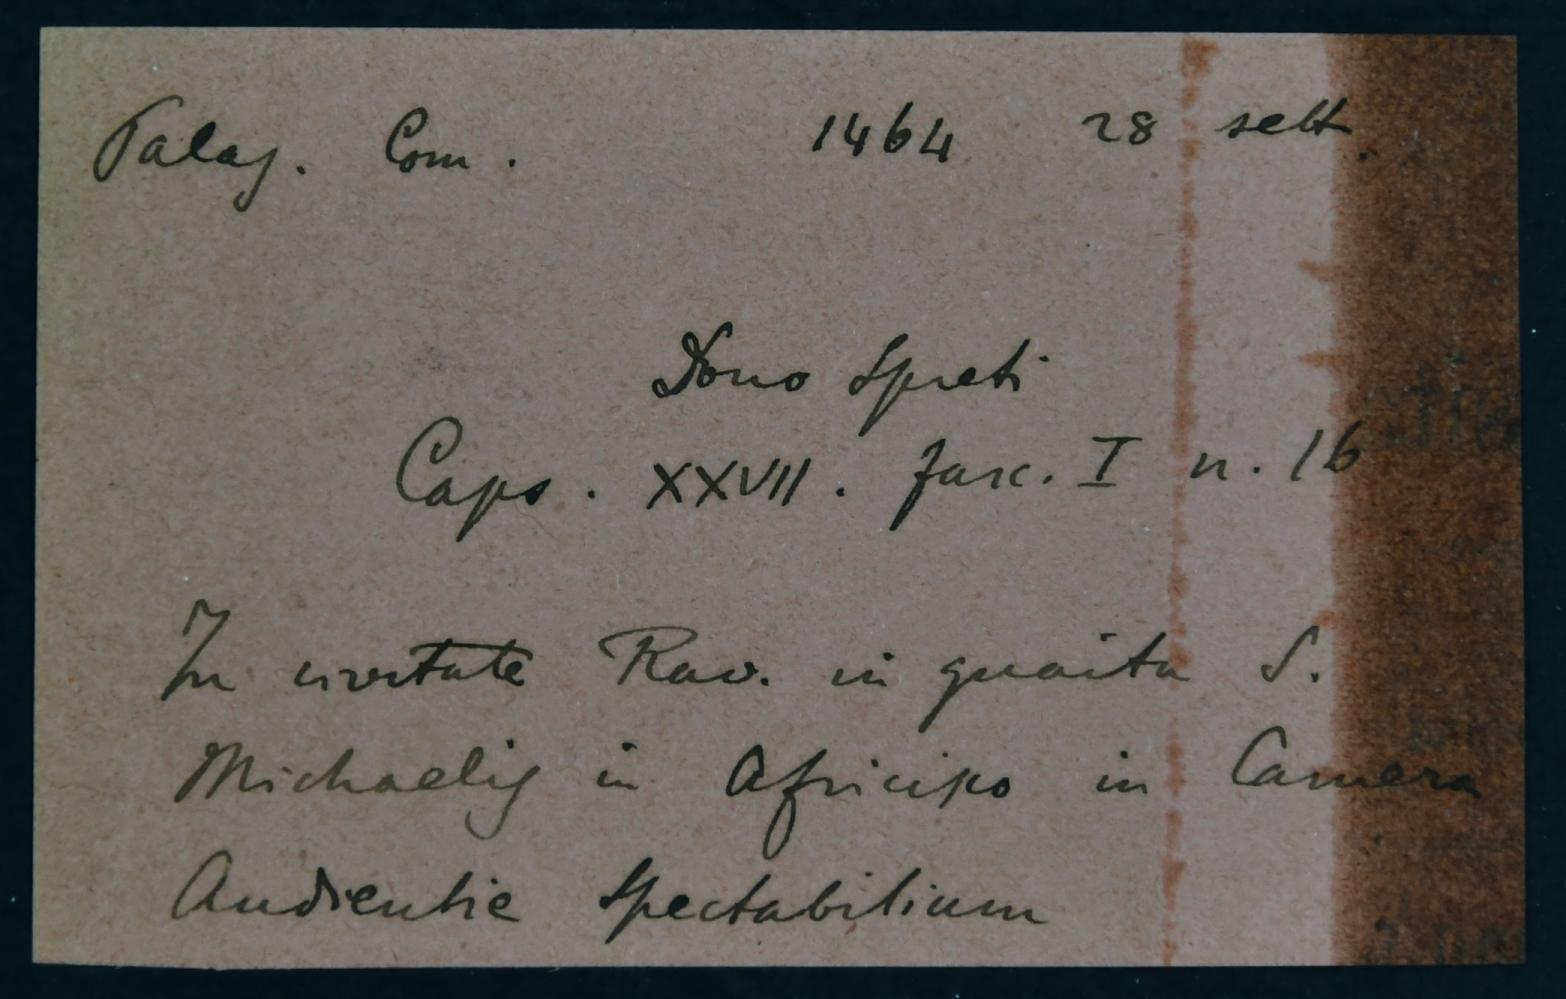 Palaz. Com. 1464 28 sett.
Dono Spreti
Caps. XXVII. fasc. I n. 16
In civitate Rav. in guaita S.
Michaelis in Africisco in Camera
Audientie Spectabilium